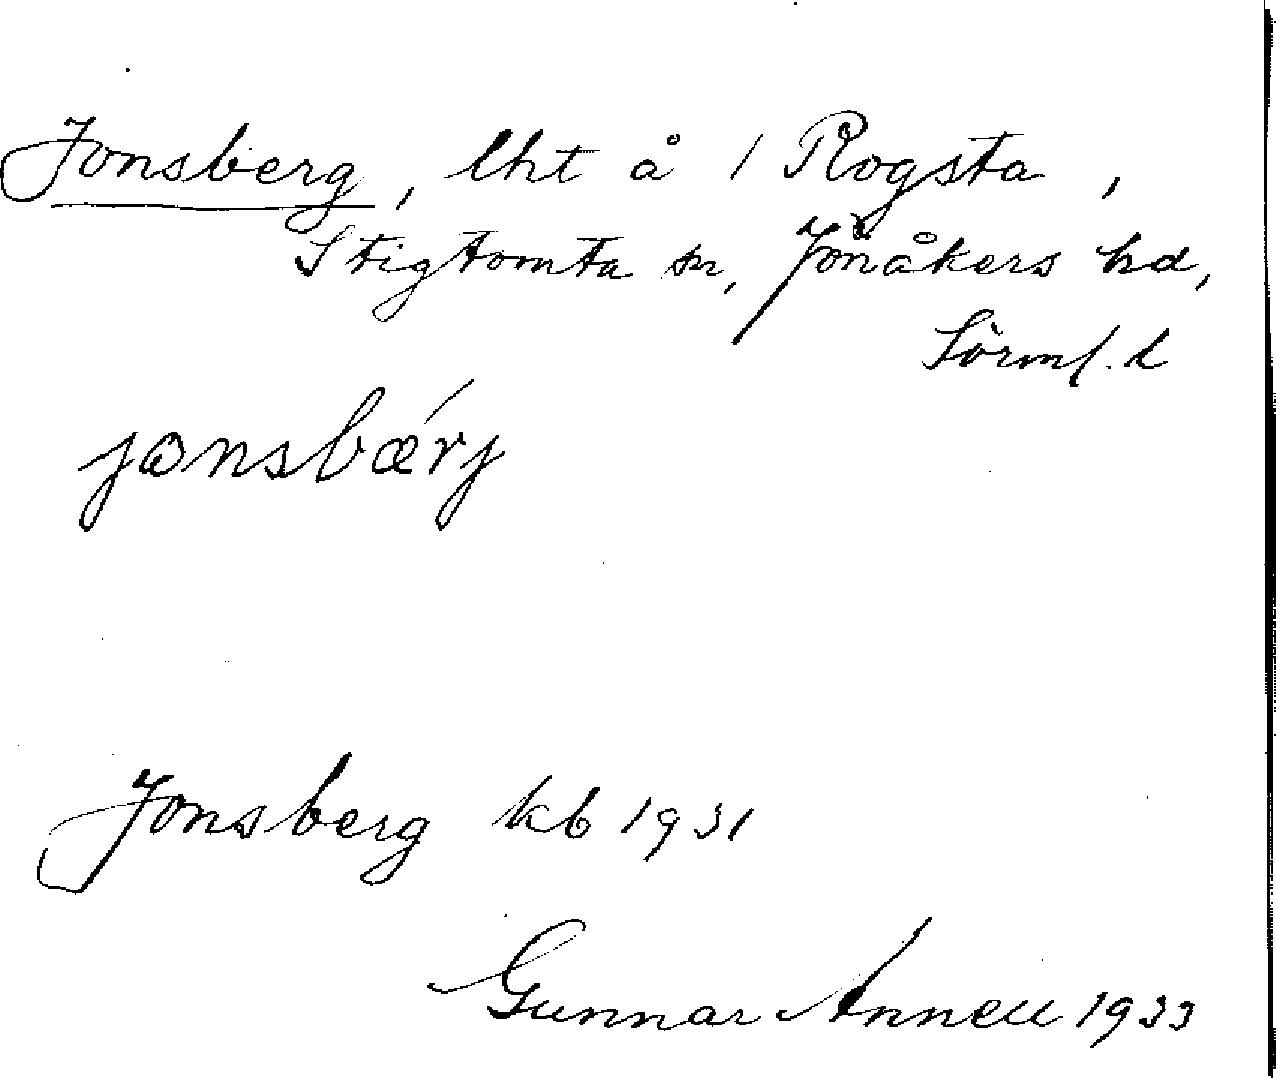 Jonsberg, lht å 1 Rogsta,
Stigtomta sn, Jönåkers hd,
Sörml. l
jonsbǽrj
Jonsberg kb 1931
Gunnar Annell 1933